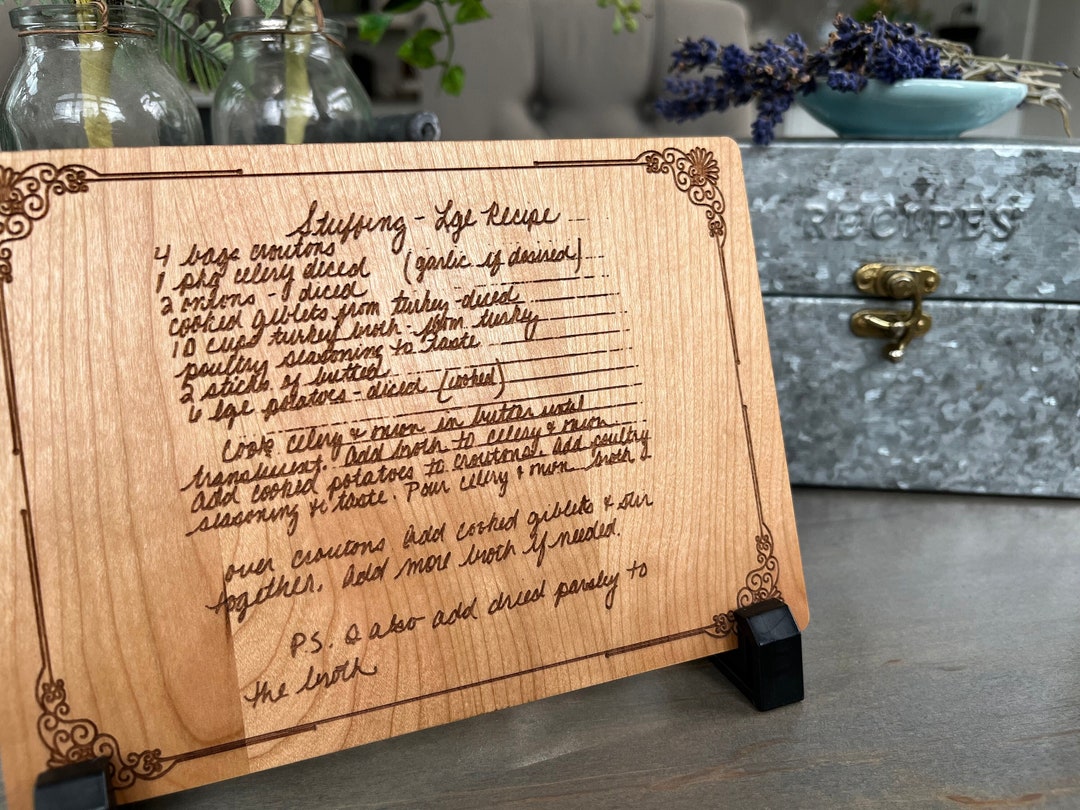 Stuffing - Lge Recipe
4 bags croutons
1 pkg celery diced (garlic if desired)
2 onions - diced
cooked giblets from turkey - diced
10 cups turkey broth - from turkey
poultry seasoning to taste
2 sticks of butter
6 lge potatoes - diced (cooked)
Cook celery & onion in butter until
translucent. Add broth to celery & onion
Add cooked potatoes to croutons, add poultry
seasoning to taste. Pour celery & onion broth
over croutons add cooked giblets & stir
together. Add more broth if needed.
P.S. I also add dried parsley to
the broth
RECIPES